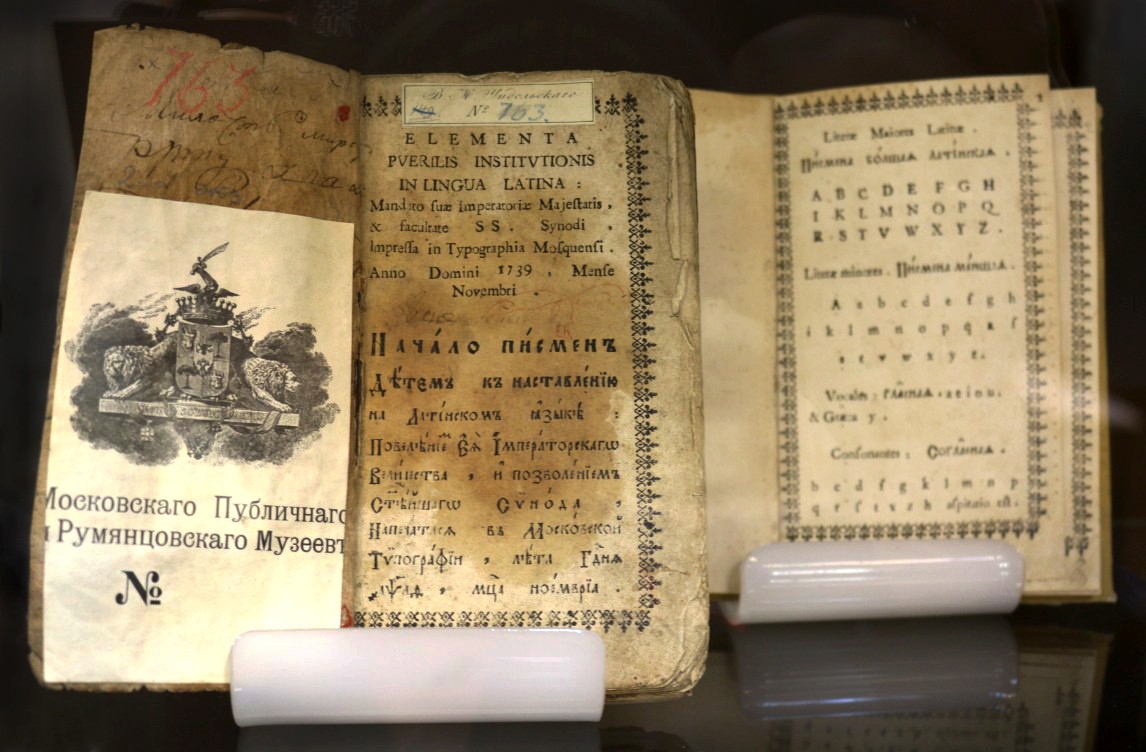 763
№ 763.
ELEMENTA
PVERILIS INSTITVTIONIS
IN LINGUA LATINA :
Mandato suæ Imperatoriæ Majestatis ,
& facultate SS . Synodi ,
Impressa in Typographia Mosquensi .
Anno Domini 1739 , Mense
Novembri .
Нача́ло пи́сменъ
Дѣ́темъ къ наставле́нїю
на Лати́нскомъ ꙗ҆зы́кѣ :
Повелѣ́нїемъ Є҆ѧ̀ І҆мпера́торскагѡ
Вели́чества , и҆ позволе́нїемъ
Ст҃ѣ́йшагѡ Сѷно́да ,
Напеча́тасѧ въ Моско́вской
Тѷпогра́фїи , лѣ́та Гдⷭ҇нѧ
҂аѱл҃ѳ , мц҃а ное́мврїа .
Московскаго Публичнаго
и Румянцовскаго Музеевъ
№
Literæ Maiores Latinæ .
Пи́смена бо́льшаѧ лати́нскаѧ .
A B C D E F G H
I K L M N O P Q
R S T V W X Y Z .
Literæ minores . Пи́смена ме́ньшаѧ .
A a b c d e f g h
i k l m n o p q
s t v w x y z .
Vocales : гла́снаѧ . a e i o u .
& Græca y .
Consonantes ; Согла́снаѧ .
b c d f g k l m n p
q r s t v x h aspiratio est .